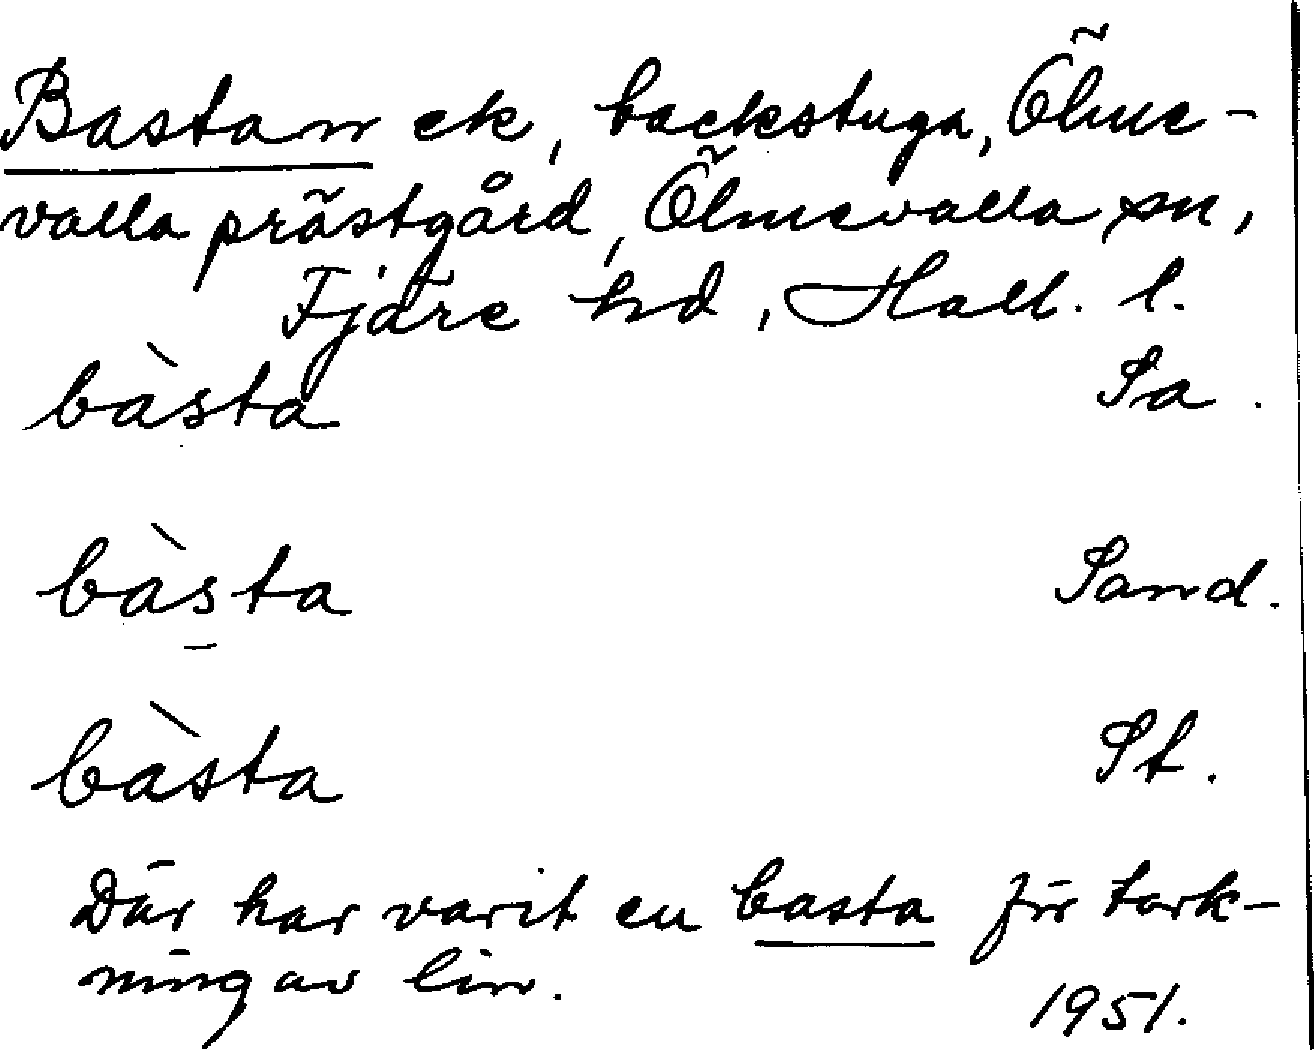 Bastan ek, backstuga, Ölme-
valla prästgård, Ölmevalla sn,
Fjäre hd, Hall. l.
bàsta Sa.
bàsta Sand.
bàsta St.
Där har varit en basta för tork-
ning av lin.
1951.